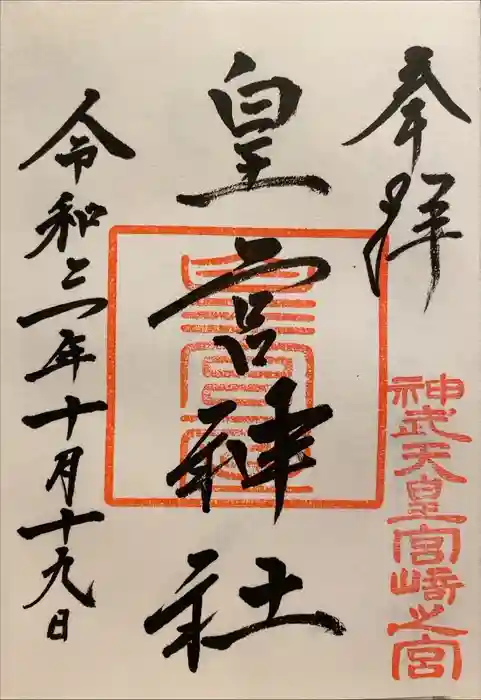 奉拝
神武天皇宮崎之宮
皇宮神社
皇宮神社
令和三年十月十九日